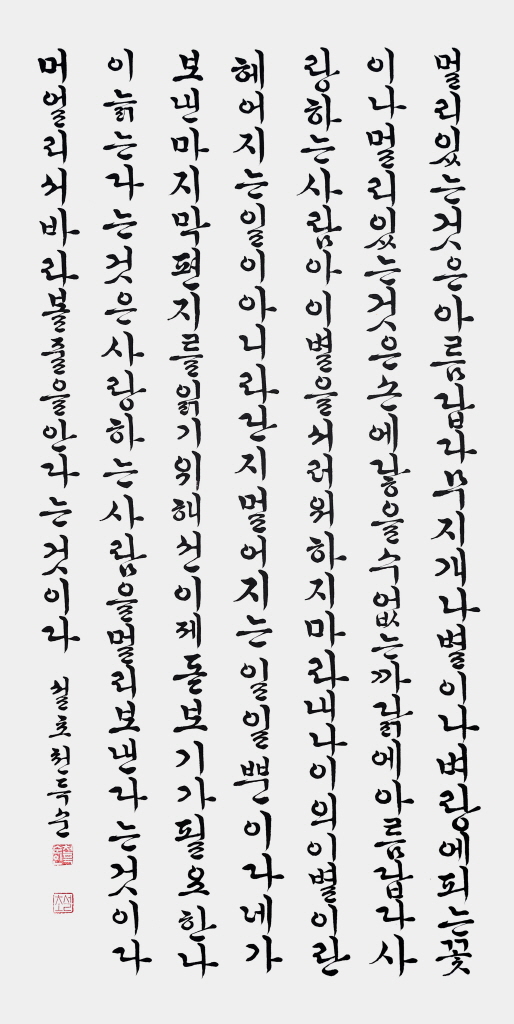 멀리있는것은아름답다무지개나별이나벼랑에피는꽃
이나멀리있는것은손에닿을수없는까닭에아름답다사
랑하는사람아이별을서러워하지마라내나이의이별이란
헤어지는일이아니라단지멀어지는일일뿐이다네가
보낸마지막편지를읽기위해선이제돋보기가필요한나
이늙는다는것은사랑하는사람을멀리보낸다는것이다
머얼리서바라볼줄을안다는것이다 설초천득순